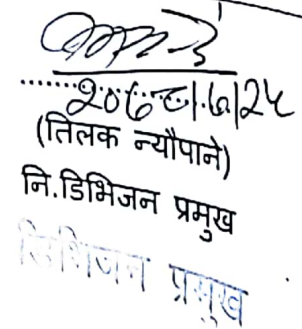 २०७८।७।२५
(तिलक न्यौपाने)
नि.डिभिजन प्रमुख
डिभिजन प्रमुख